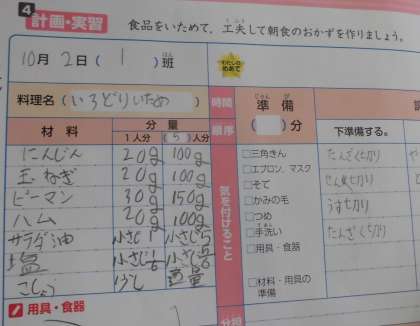 4 計画・実習 食品をいためて、工夫して朝食のおかずを作りましょう。
10月 2日( 1 )班 わたしのめあて
料理名(いろどりいため) 時間 準備
材料 分量 順序 ( )分
1人分 (5)人分 下準備する。
にんじん 20g 100g □三角きん たんざく切り
玉ねぎ 20g 100g □エプロン、マスク せん切り
ピーマン 30g 150g □そで うす切り
ハム 20g 100g □かみの毛 たんざく切り
サラダ油 小さじ1 小さじ5 □つめ
塩 小さじ1/6 小さじ5/6 □手洗い
こしょう 少し 適量 □用具・食器
気を付けること
□材料・用具の
準備
用具・食器
分担